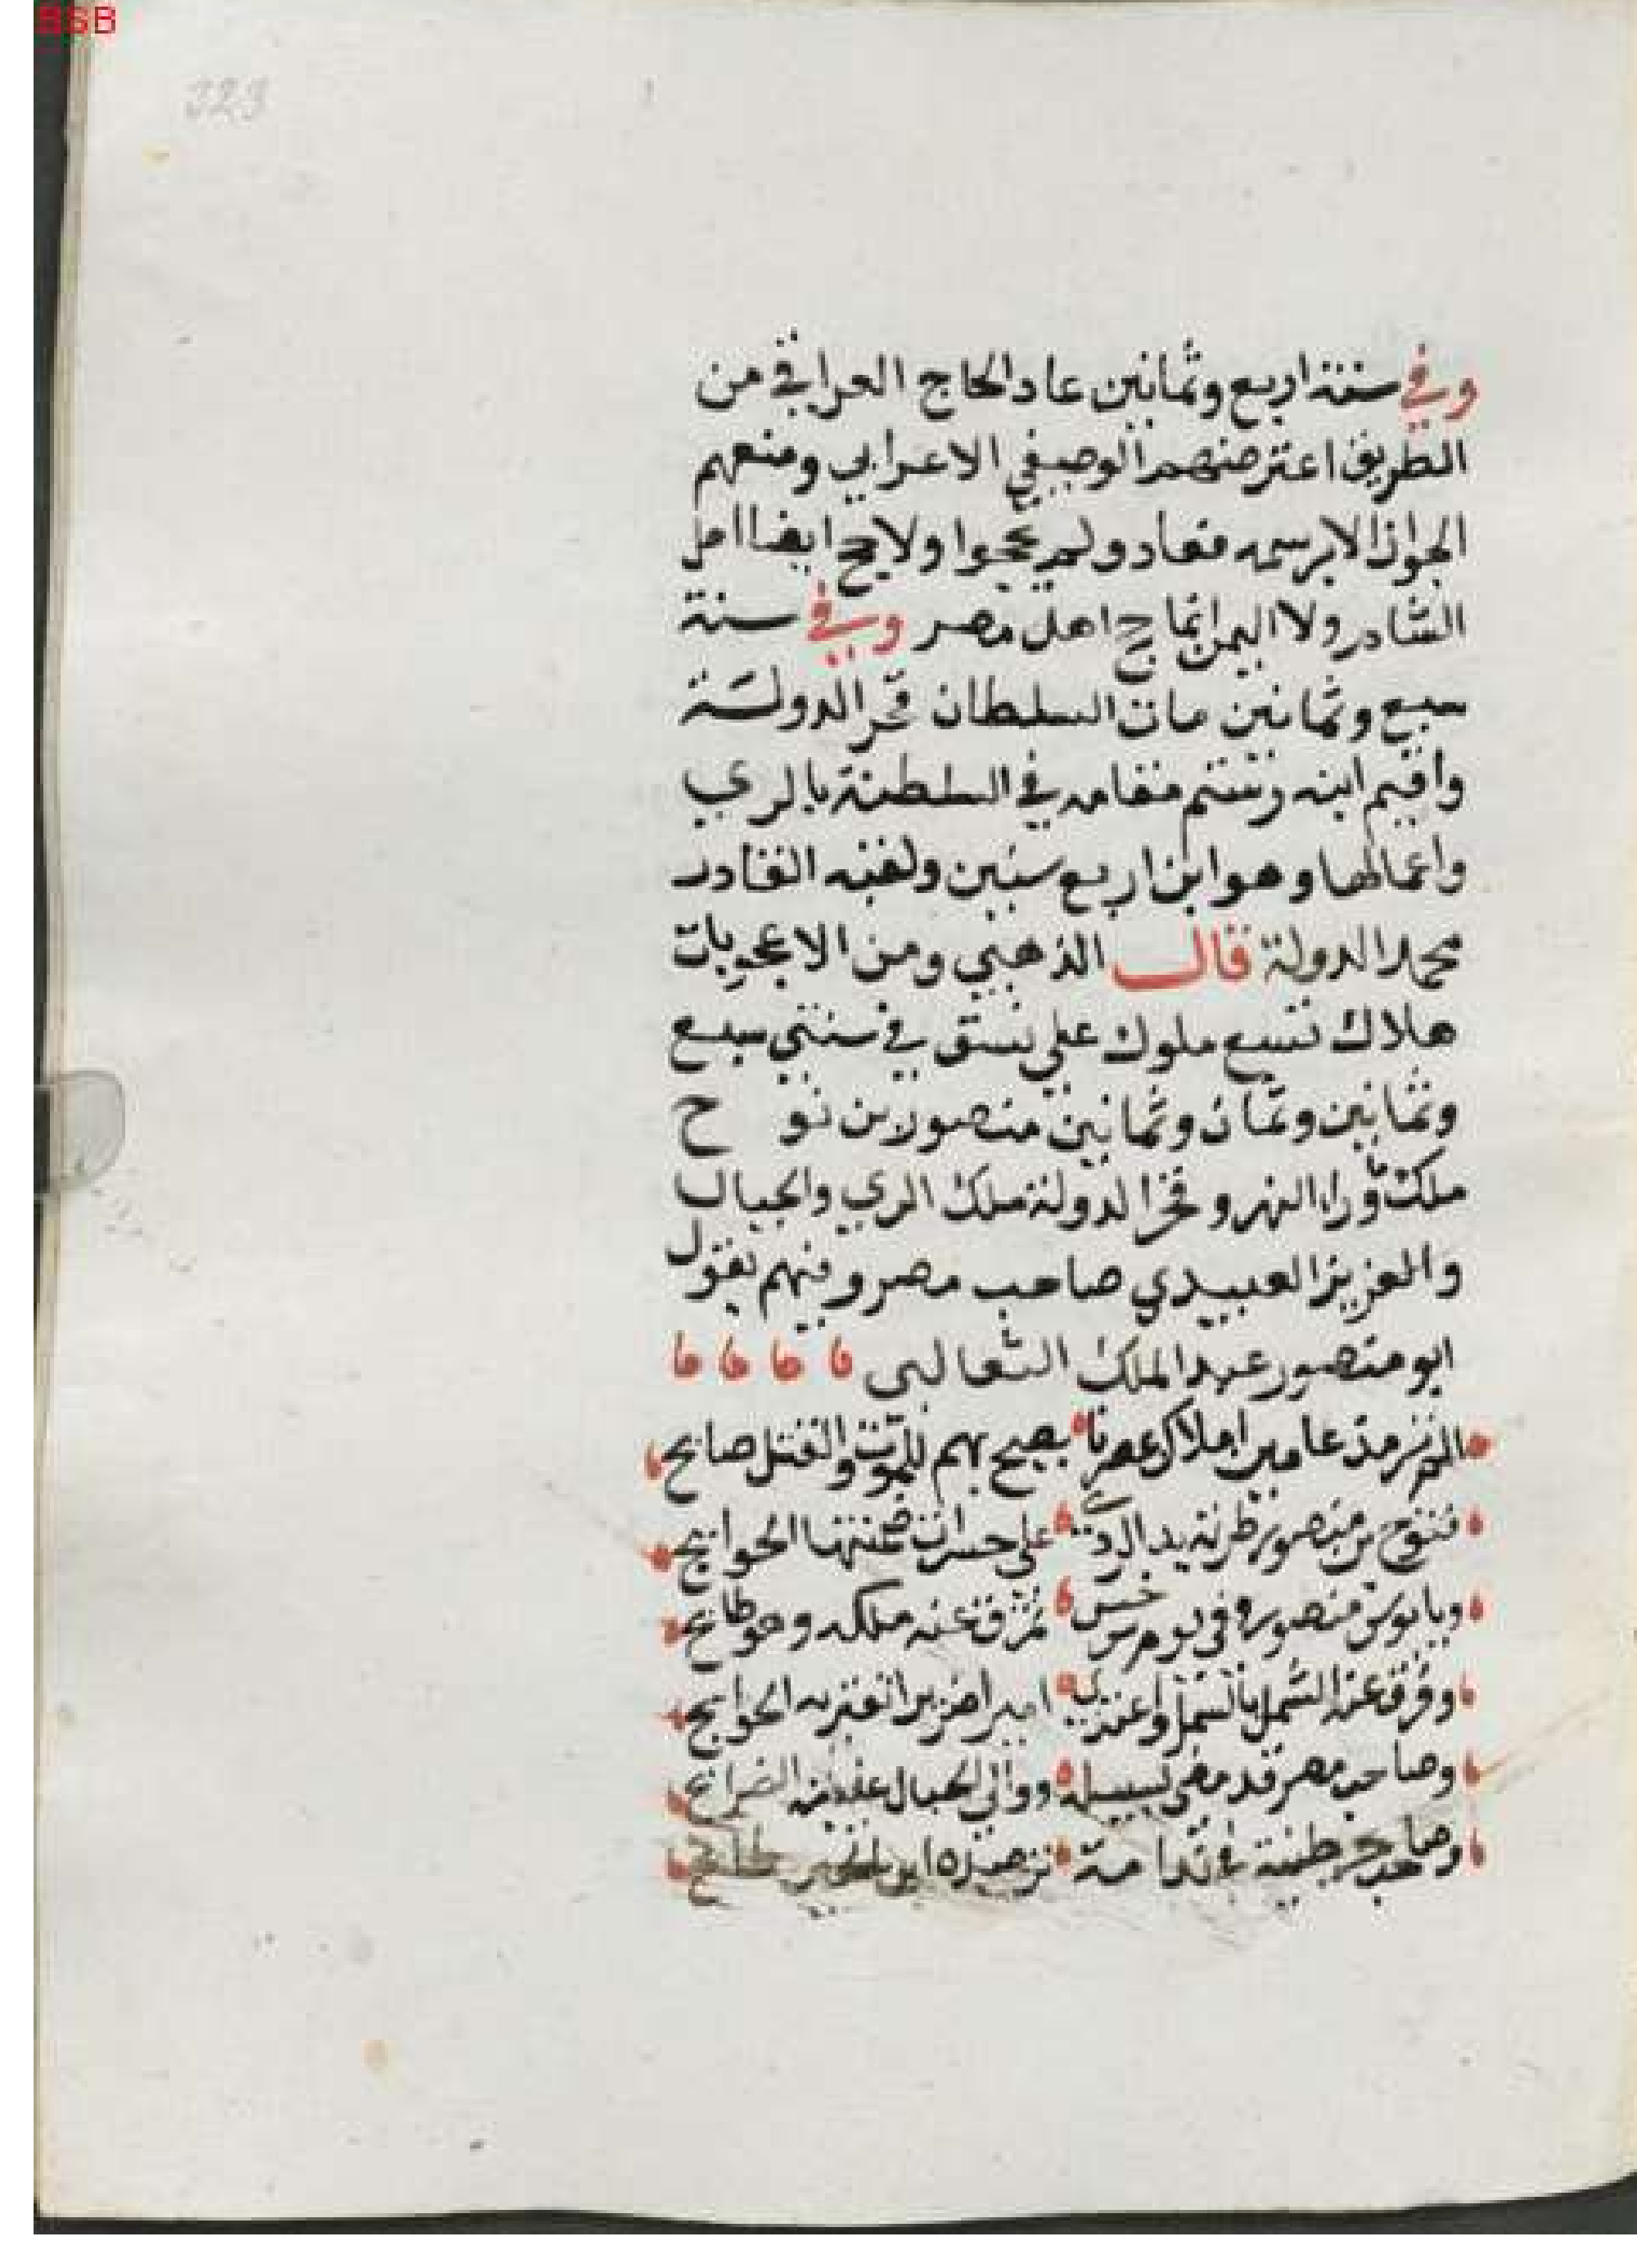 BSB
323
وفي سنة اربع وثمانين عاد الحاج العراقي من
الطريق اعترضهم الاصيفي الاعرابي ومنعهم
الجواز الا برسمه فعادو ولم يحجوا ولا حج ايضا اهل
الشام ولا اليمن انما حج اهل مصر وفي سنة
سبع وثمانين مات السلطان فخر الدولة
واقيم ابنه رستم مقامه في السلطنة بالري
واعمالها وهو ابن اربع سنين ولقبه القادر
مجد الدولة قال الذهبي ومن الاعجوبات
هلاك تسع ملوك على نسق في سنتي سبع
وثمانين وثمان وثمانين منصور بن نوح
ملك ما وراء النهر وفخر الدولة ملك الري والجبال
والعزيز العبيدي صاحب مصر وفيهم يقول
ابو منصور عبد الملك الثعالبي
الم تر مذ عامين املاك عصرنا يصيح بهم للموت والقتل صايح
فنوح بن منصور طوته يد الردى على حسرات ضمنتها الجوانح
ويا بوس منصور وفي يوم سرخس تمزق عنه ملكه وهو طايح
وفرق عنه الشمل بالسمل واغتدى اميرا ضريرا تعتريه الجوايح
وصاحب مصر قد مضى لسبيله ووالي الجبال غيبته الضرايح
وصاحب جرجانية في ندامة ترصده